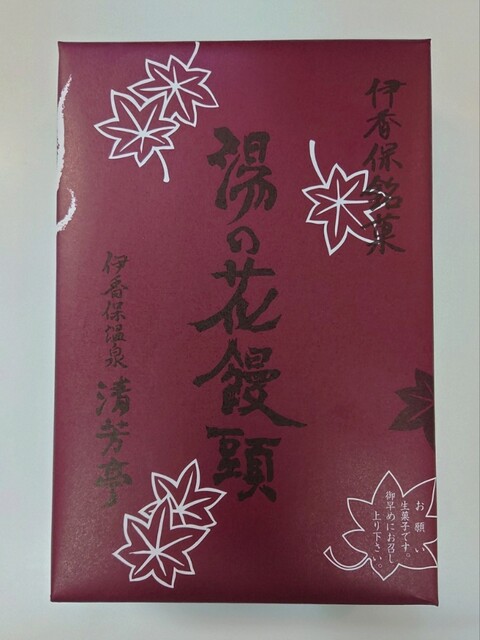 伊香保銘菓
湯の花饅頭
伊香保温泉
清芳亭
お願い
生菓子です。
御早めにお召し
上り下さい。